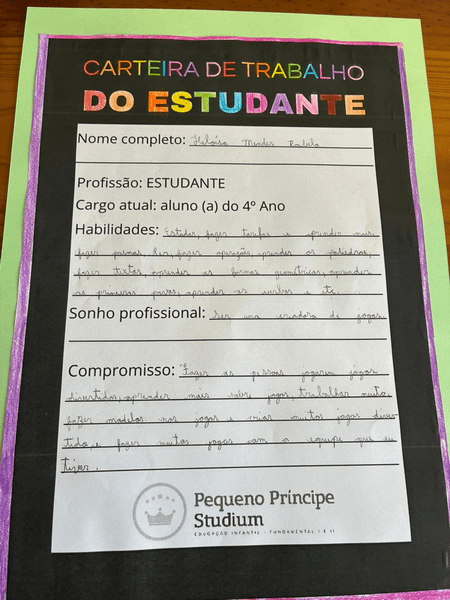 CARTEIRA DE TRABALHO
DO ESTUDANTE
Nome completo: Heloísa Mendes Rabelo
Profissão: ESTUDANTE
Cargo atual: aluno (a) do 4º Ano
Habilidades: Estudar, fazer tarefas e aprender mais,
fazer provas ler, fazer operações, aprender os poliedros,
fazer textos, aprender as formas geométricas, aprender
os primeiros povos, aprender os verbos e etc.
Sonho profissional: Ser uma criadora de jogos.
Compromisso: Fazer as pessoas jogarem jogos
divertidos, aprender mais sobre jogos, trabalhar muito,
fazer modelos nos jogos e criar muitos jogos diver-
tidos e fazer muitos jogos com a equipe que eu
tiver.
Pequeno Príncipe
Studium
EDUCAÇÃO INFANTIL · FUNDAMENTAL I E II